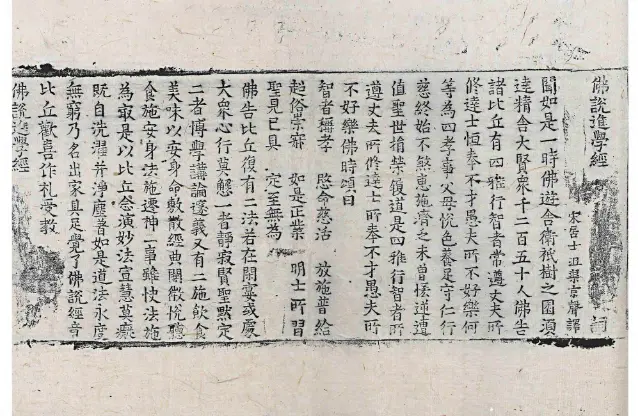 佛說進學經
宋居士沮渠京聲譯
聞如是一時佛遊舍衛祇樹之園須
達精舍大賢衆千二百五十人佛告
諸比丘有四雅行智者常遵丈夫所
修達士恒奉不才愚夫所不好樂何
等為四孝事父母悅色養足守仁行
慈終始不煞惠施濟乏未曾悋逆遭
值聖世捐榮履道是四雅行智者所
遵丈夫所修達士所奉不才愚夫所
不好樂佛時頌曰
智者稱孝 愍命慈活 放施普給
超俗崇寂 如是正業 明士所習
聖見已具 定至無為
佛告比丘復有二法若在閑宴或處
大衆心行莫懈一者靜寂賢聖默定
二者博學講論邃義又有二施飲食
美味以安身命敷散經典闡微悅聽
食施安身法施遷神一事雖快法施
為最是以比丘念演妙法宣慧莫癡
既自洗濯并淨塵昔如是道法永度
無窮乃名出家具足覺了佛說經竟
比丘歡喜作礼受教
佛說進學經